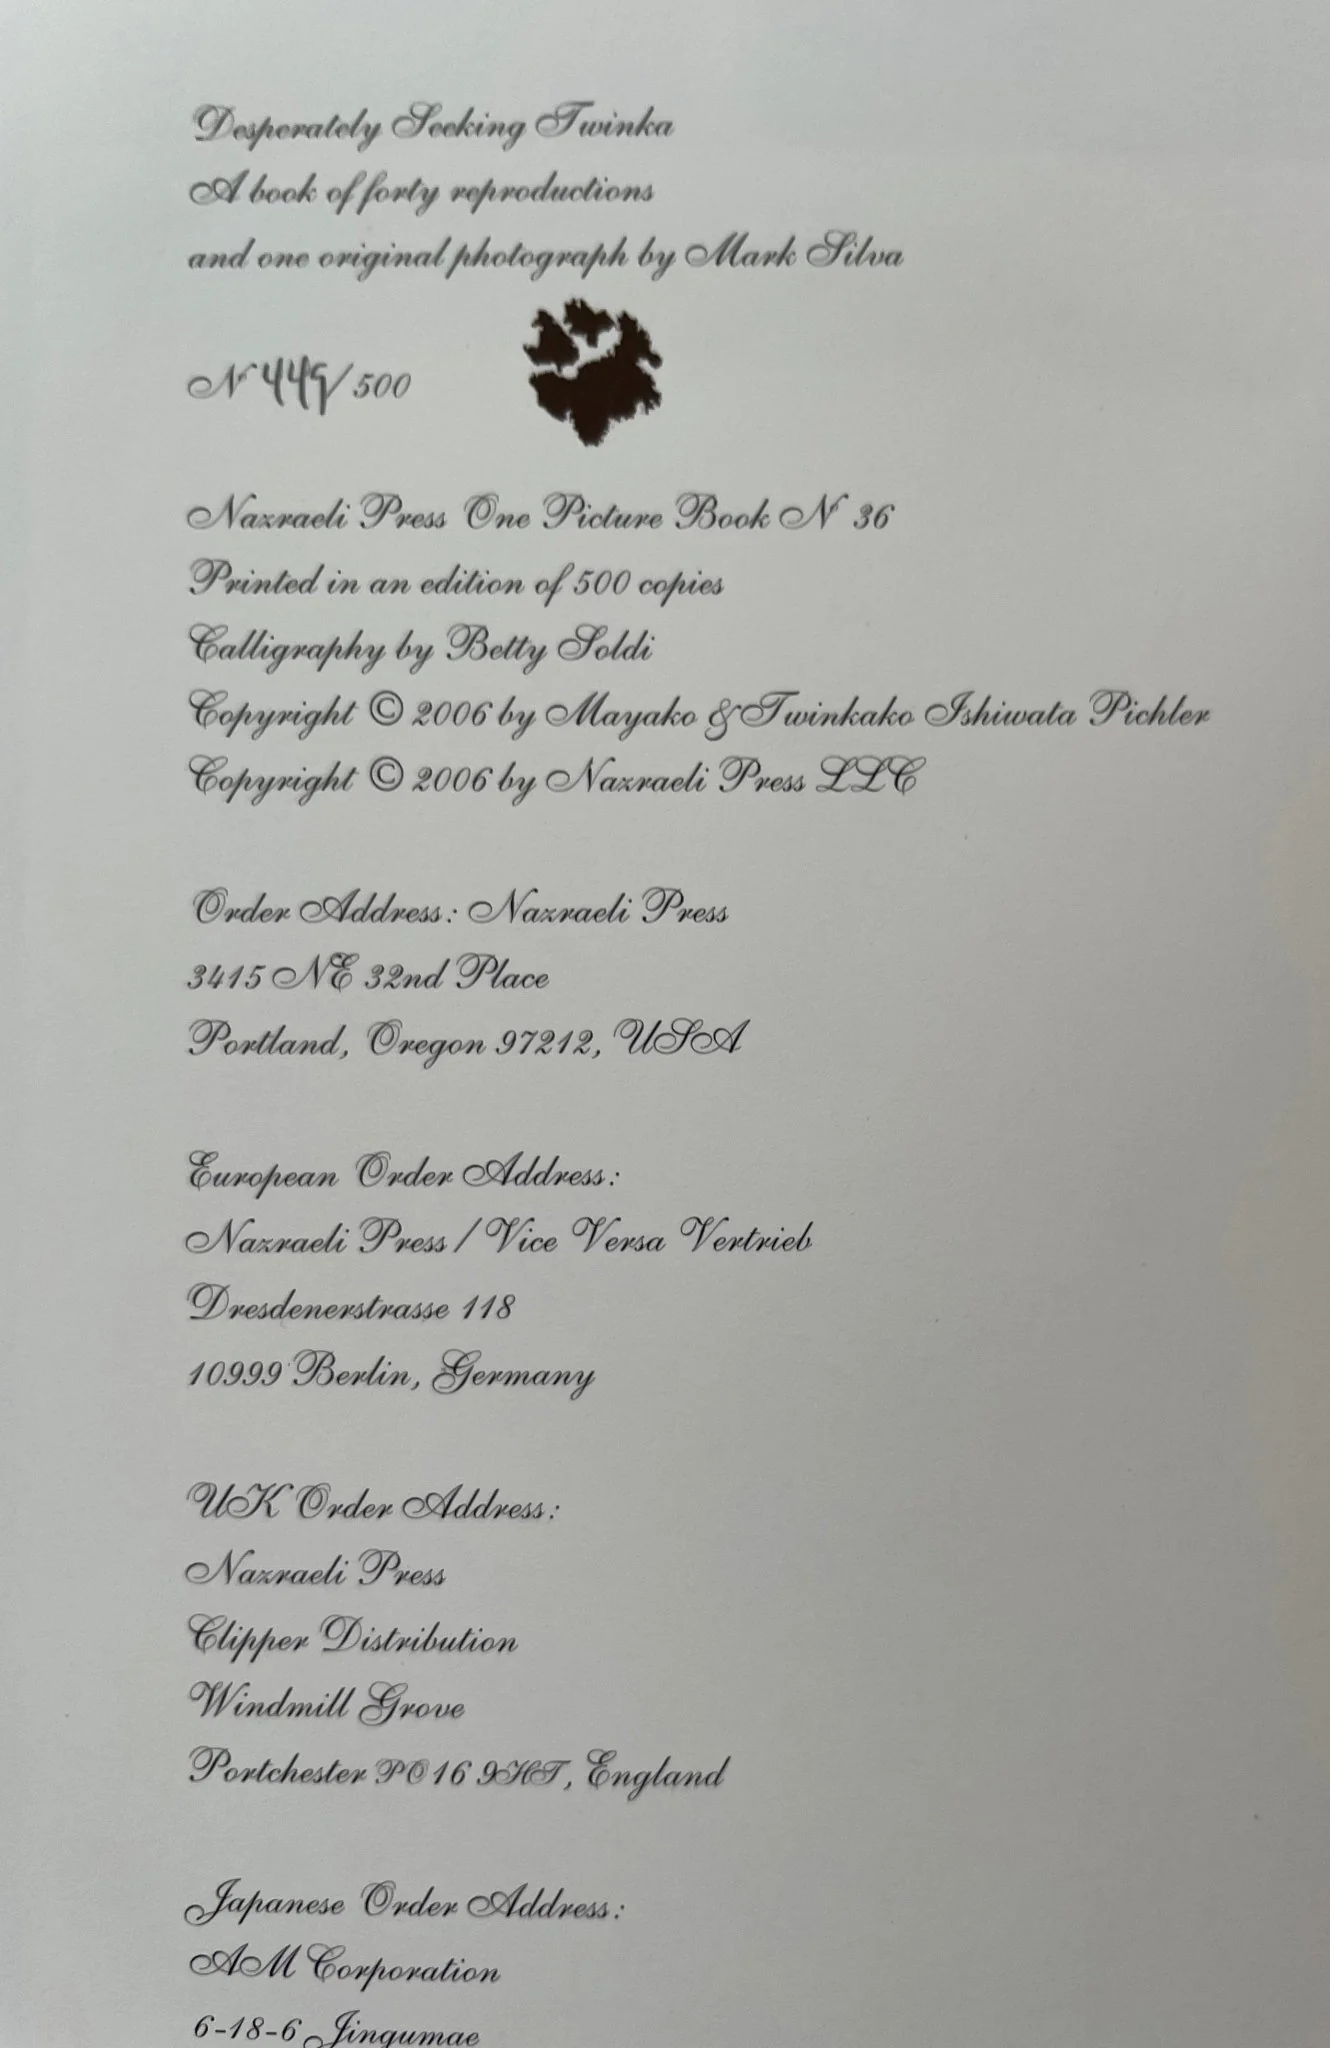 Desperately Seeking Twinka
A book of forty reproductions
and one original photograph by Mark Silva
N° 449/500
Nazraeli Press One Picture Book N° 36
Printed in an edition of 500 copies
Calligraphy by Betty Soldi
Copyright © 2006 by Mayako & Twinkako Ishiwata Pichler
Copyright © 2006 by Nazraeli Press LLC
Order Address: Nazraeli Press
3415 NE 32nd Place
Portland, Oregon 97212, USA
European Order Address:
Nazraeli Press / Vice Versa Vertrieb
Dresdenerstrasse 118
10999 Berlin, Germany
UK Order Address:
Nazraeli Press
Clipper Distribution
Windmill Grove
Portchester PO16 9HT, England
Japanese Order Address:
AM Corporation
6-18-6 Jingumae